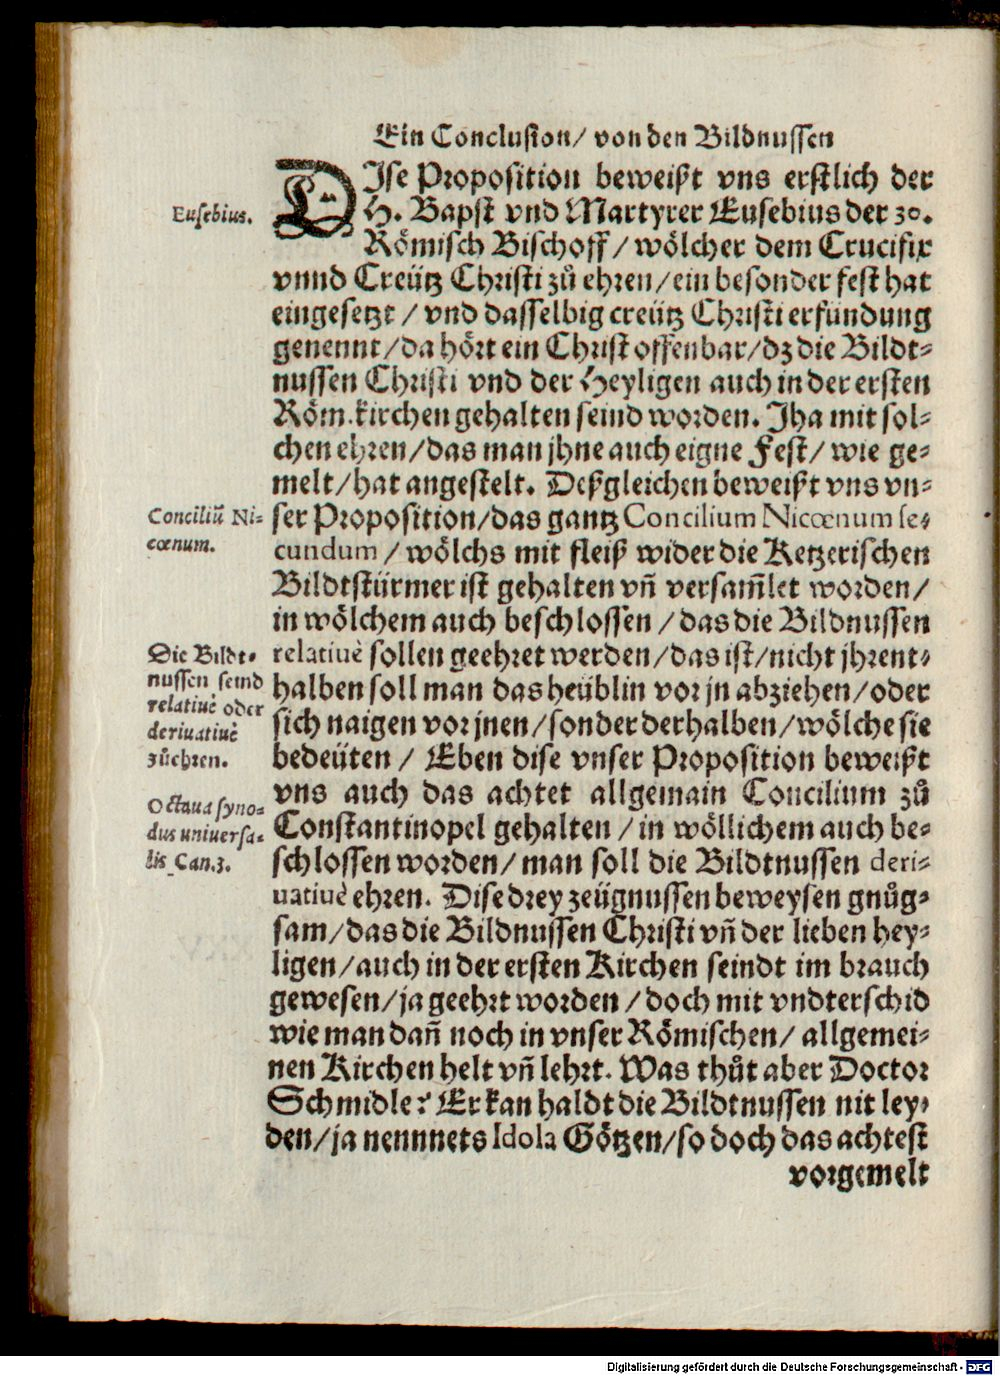 Ein Conclusion/ von den Bildnussen
DIse Proposition beweißt vns erstlich der
Eusebius.
H. Bapst vnd Martyrer Eusebius der 30.
Römisch Bischoff/ wölcher dem Crucifix
vnnd Creütz Christi zů ehren/ ein besonder fest hat
eingesetzt/ vnd dasselbig creütz Christi erfündung
genennt/ da hört ein Christ offenbar/ dz die Bildt⸗
nussen Christi vnd der Heyligen auch in der ersten
Röm. kirchen gehalten seind worden. Jha mit sol⸗
chen ehren/ das man jhne auch eigne Fest/ wie ge⸗
melt/ hat angestelt. Deßgleichen beweißt vns vn⸗
Conciliũ Ni⸗
cœnum.
ser Proposition/ das gantz Concilium Nicœnum se⸗
cundum/ wölchs mit fleiß wider die Ketzerischen
Bildtstürmer ist gehalten vñ versam̃let worden/
in wölchem auch beschlossen/ das die Bildnussen
Die Bildt⸗
nussen seind
relatiuè oder
deriuatiuè
zůehren.
relatiuè sollen geehret werden/ das ist/ nicht jhrent⸗
halben soll man das heüblin vor jn abziehen/ oder
sich naigen vor jnen/ sonder derhalben/ wölche sie
bedeüten/ Eben dise vnser Proposition beweißt
vns auch das achtet allgemain Concilium zů
Octaua syno⸗
dus uniuersa⸗
lis Can.3.
Constantinopel gehalten/ in wöllichem auch be⸗
schlossen worden/ man soll die Bildtnussen deri⸗
uatiuè ehren. Dise drey zeügnussen beweysen gnůg⸗
sam/ das die Bildnussen Christi vñ der lieben hey⸗
ligen/ auch in der ersten Kirchen seindt im brauch
gewesen/ ja geehrt worden/ doch mit vndterschid
wie man dañ noch in vnser Römischen/ allgemei⸗
nen Kirchen helt vñ lehrt. Was thůt aber Doctor
Schmidle? Er kan haldt die Bildtnussen nit ley⸗
den/ ja nennnets Idola Götzen/ so doch das achtest
vorgemelt
Digitalisierung gefördert durch die Deutsche Forschungsgemeinschaft - DFG